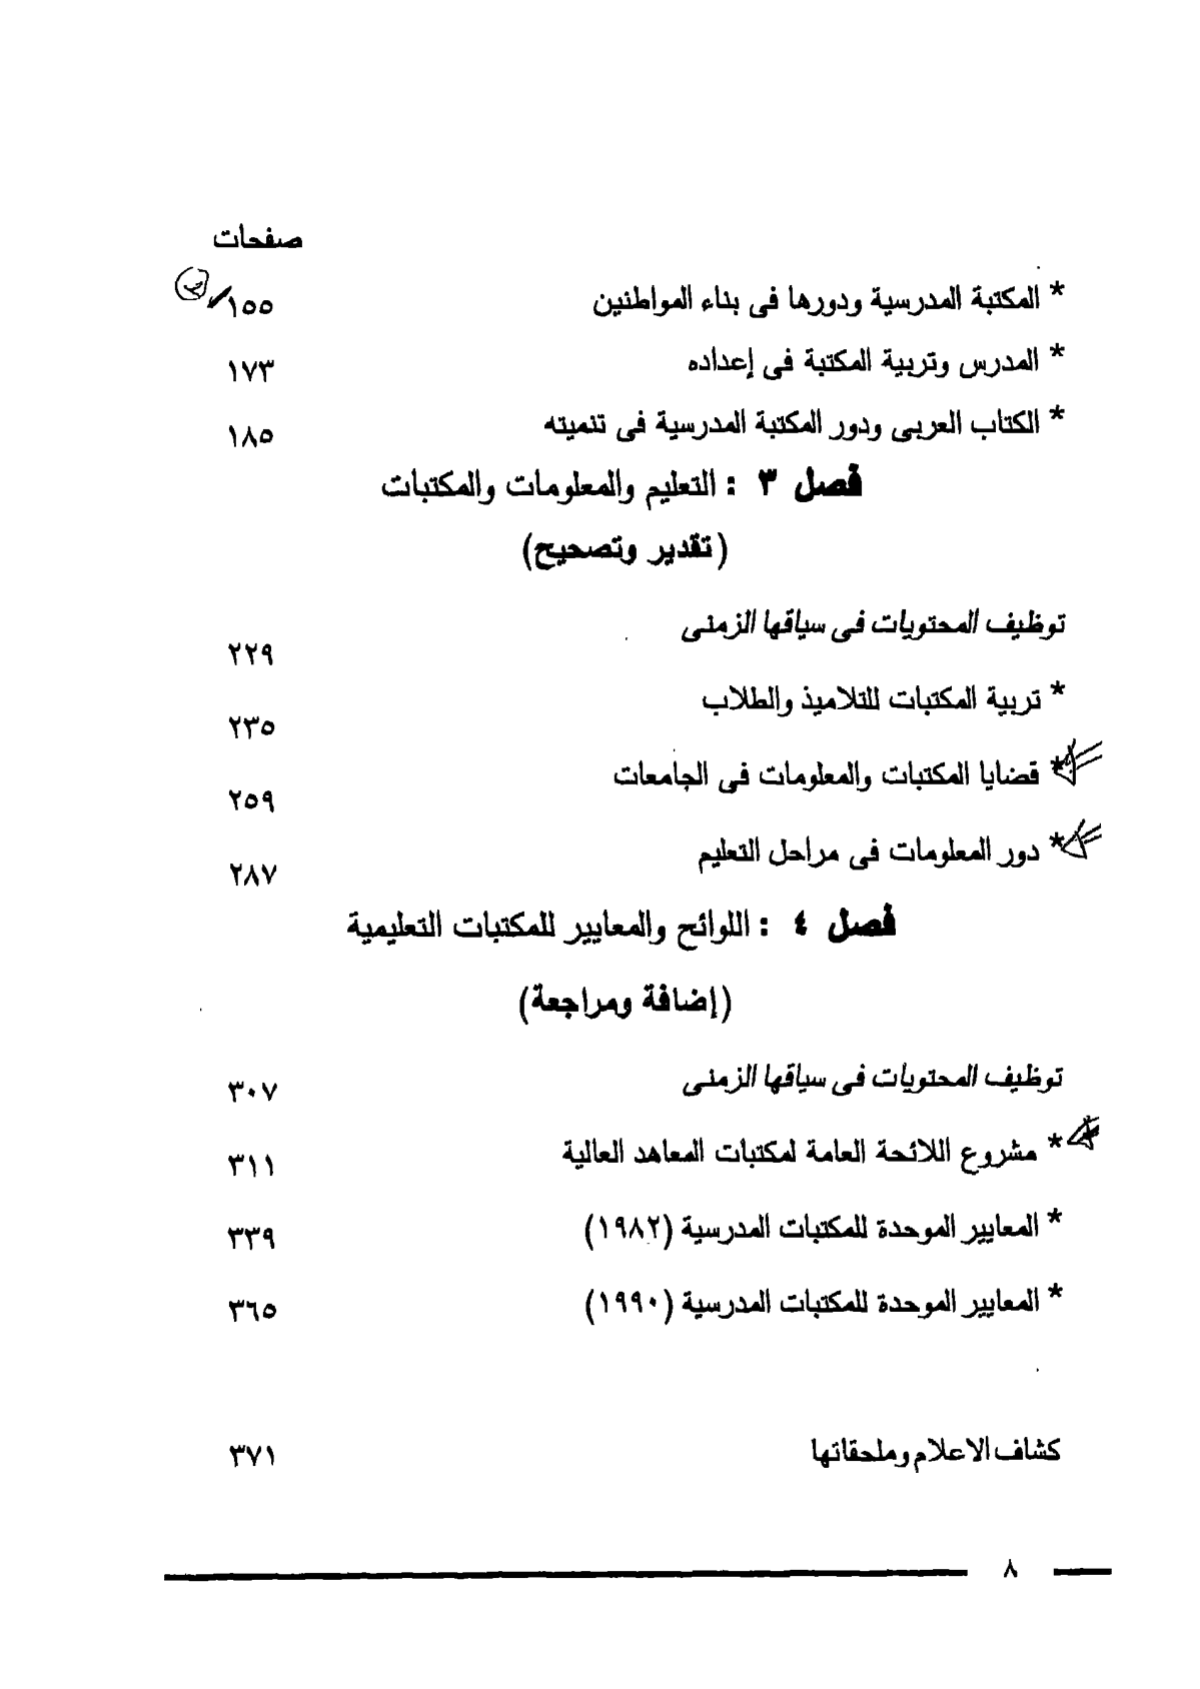 صفحات
* المكتبة المدرسية ودورها فى بناء المواطنين ١٥٥
* المدرس وتربية المكتبة فى إعداده ١٧٣
* الكتاب العربى ودور المكتبة المدرسية فى تنميته ١٨٥
فصل ٣ : التعليم والمعلومات والمكتبات
(تقدير وتصحيح)
توظيف المحتويات فى سياقها الزمنى ٢٢٩
* تربية المكتبات للتلاميذ والطلاب ٢٣٥
* قضايا المكتبات والمعلومات فى الجامعات ٢٥٩
* دور المعلومات فى مراحل التعليم ٢٨٧
فصل ٤ : اللوائح والمعايير للمكتبات التعليمية
(إضافة ومراجعة)
توظيف المحتويات فى سياقها الزمنى ٣٠٧
* مشروع اللائحة العامة لمكتبات المعاهد العالية ٣١١
* المعايير الموحدة للمكتبات المدرسية (١٩٨٢) ٣٣٩
* المعايير الموحدة للمكتبات المدرسية (١٩٩٠) ٣٦٥
كشاف الاعلام وملحقاتها ٣٧١
٨